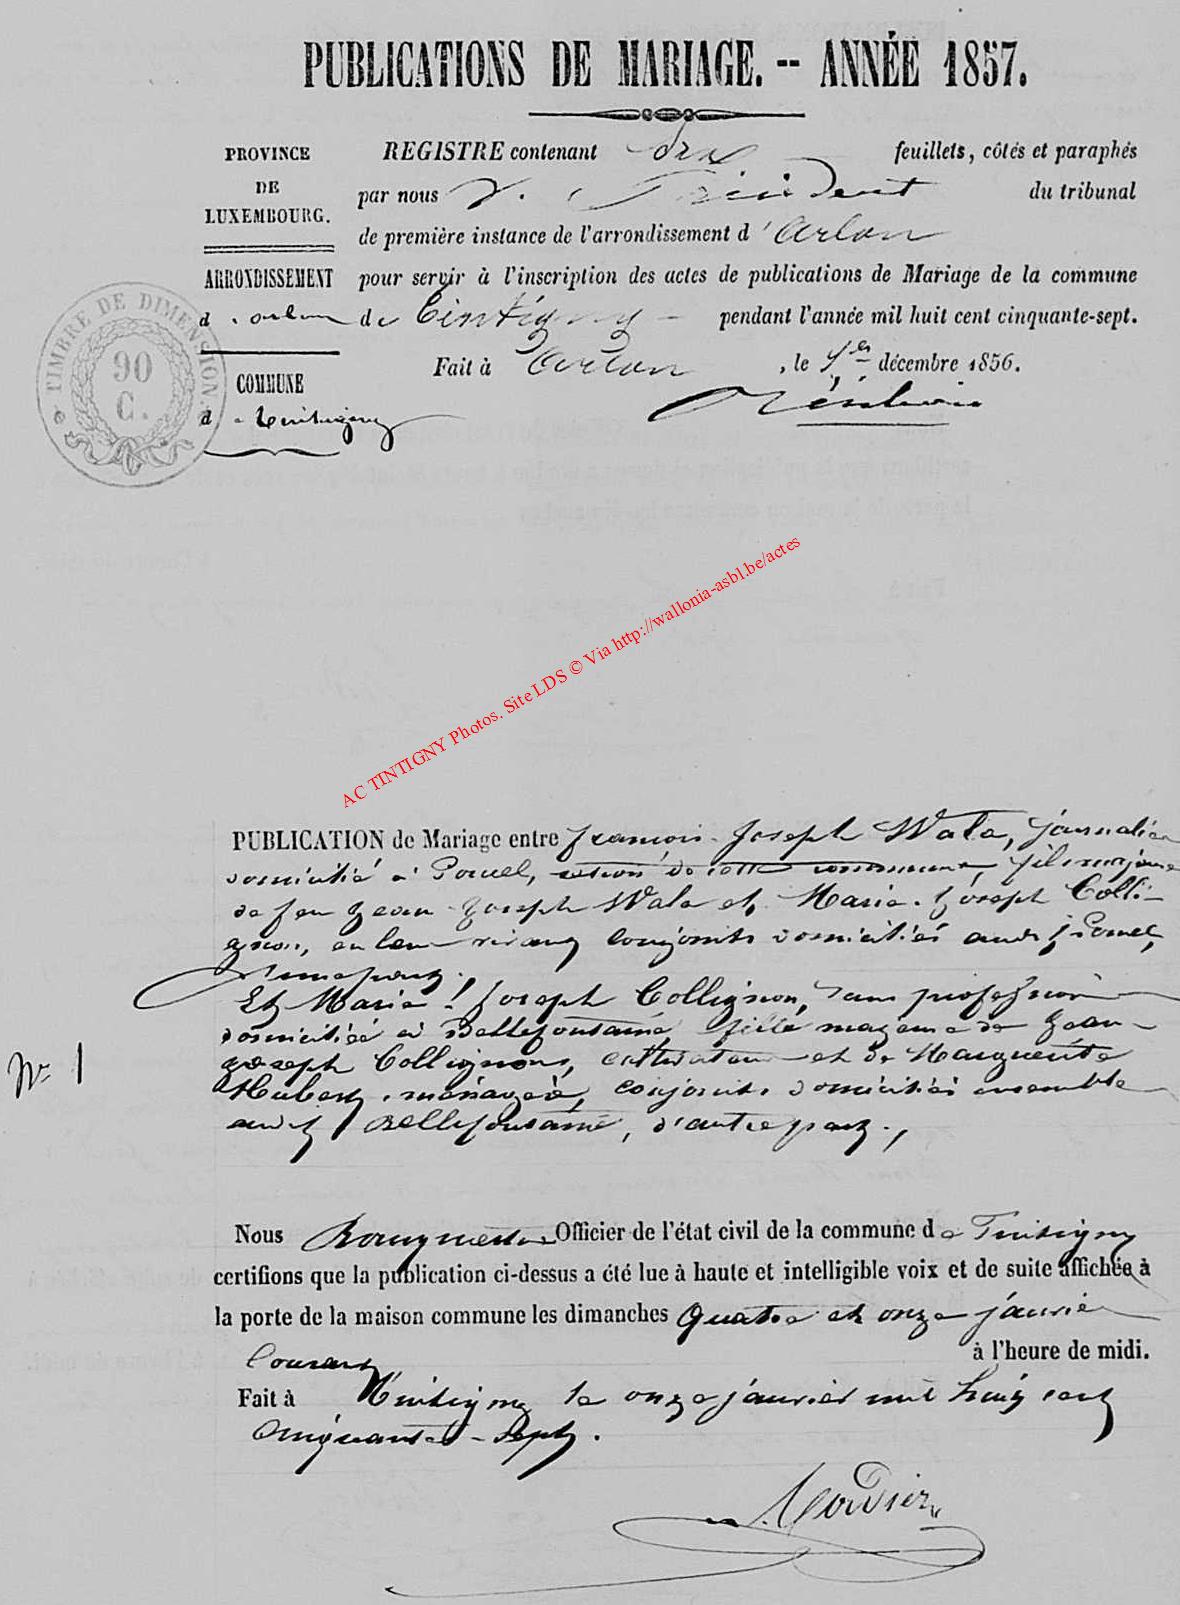 PUBLICATIONS DE MARIAGE. -- ANNÉE 1857.
PROVINCE
DE
LUXEMBOURG.
ARRONDISSEMENT
d'arlon
COMMUNE
de Tintigny
TIMBRE DE DIMENSION.
90
C.
REGISTRE contenant feuillets, côtés et paraphés
par nous Président du tribunal
de première instance de l'arrondissement d'Arlon
pour servir à l'inscription des actes de publications de Mariage de la commune
de Tintigny pendant l'année mil huit cent cinquante-sept.
Fait à Arlon, le 1er décembre 1856.
AC TINTIGNY Photos. Site LDS © Via http://wallonia-asbl.be/actes
N° 1
PUBLICATION de Mariage entre françois-Joseph Wala, journalier
domicilié à Poncel, section de cette commune, fils majeur
de feu Jean-Joseph Wala et Marie-Joseph Colli-
gnon, en leur vivant conjoints domiciliés audit Poncel,
d'une part.
Et Marie-Joseph Collignon, sans profession
domiciliée à Bellefontaine fille majeure de Jean-
Joseph Collignon, cultivateur et de Marguerite
Hubert, ménagère, conjoints domiciliés ensemble
audit Bellefontaine, d'autre part.
Nous Officier de l'état civil de la commune de Tintigny
certifions que la publication ci-dessus a été lue à haute et intelligible voix et de suite affichée à
la porte de la maison commune les dimanches quatre et onze janvier
courant à l'heure de midi.
Fait à Tintigny le onze janvier mil huit cent
cinquante-sept.